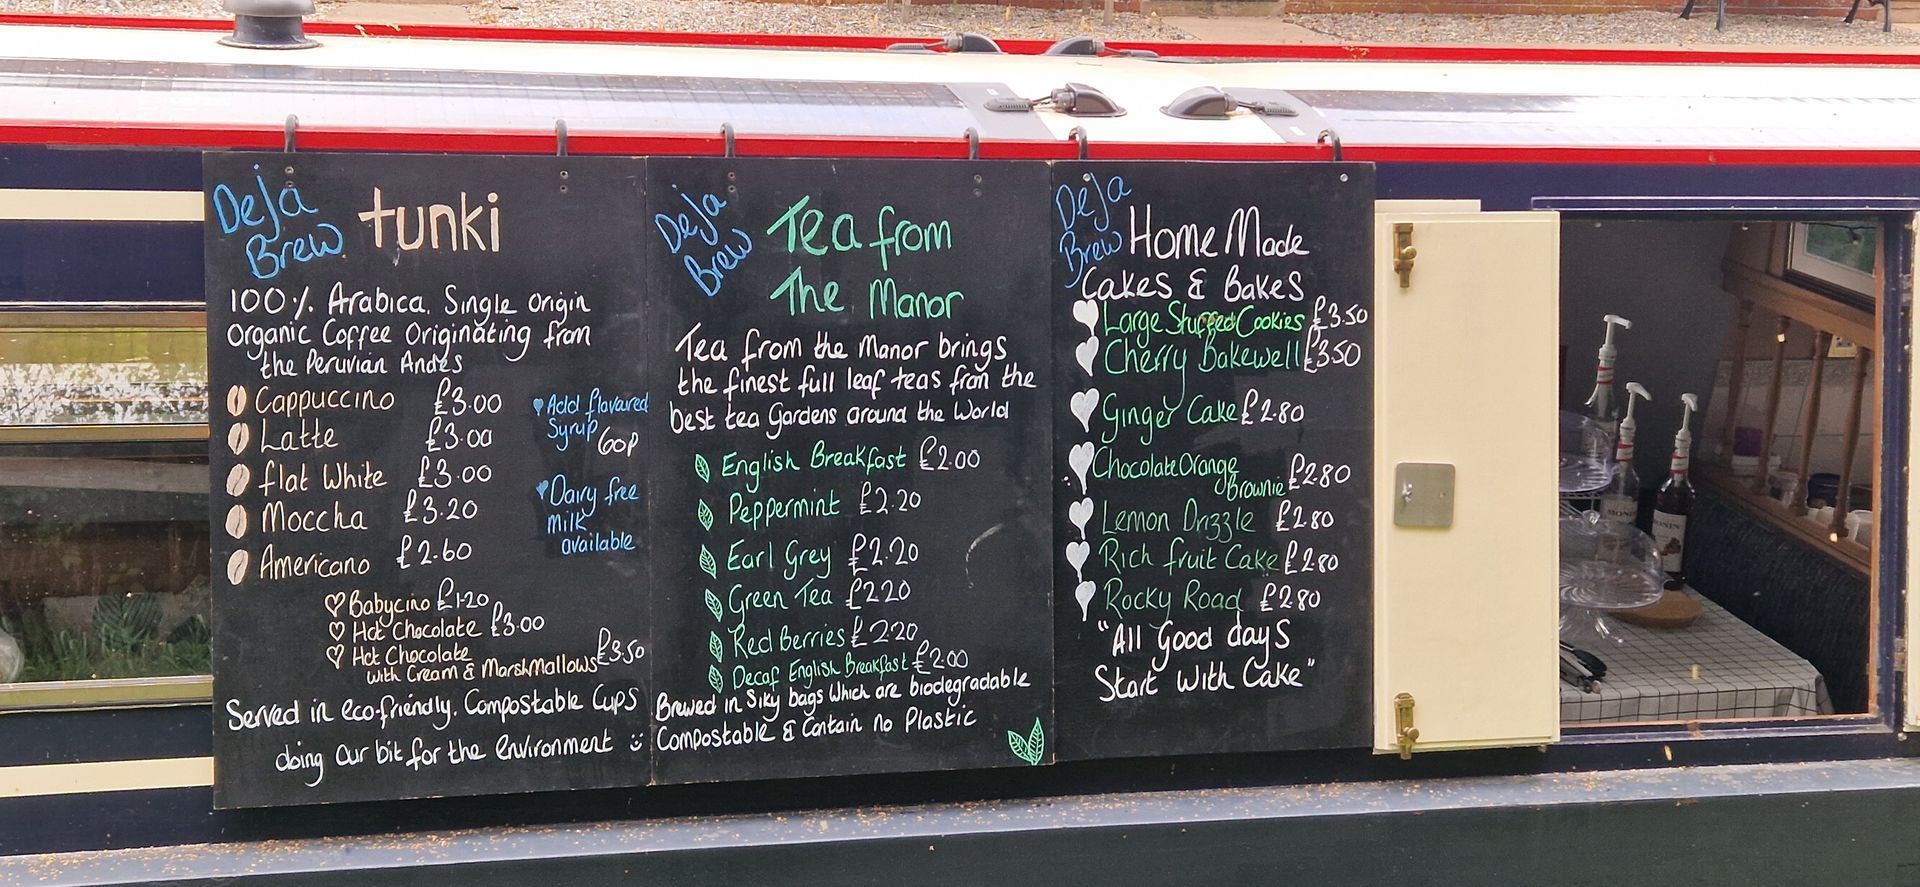 Deja
Brew
tunki
100% Arabica, Single Origin
Organic Coffee Originating from
the Peruvian Andes
Cappuccino £3.00
Latte £3.00
flat White £3.00
Moccha £3.20
Americano £2.60
Add flavoured
Syrup 60p
Dairy free
milk
available
Babycino £1.20
Hot Chocolate £3.00
Hot Chocolate
with Cream & Marshmallows £3.50
Served in eco-friendly, Compostable Cups
doing our bit for the environment
Deja
Brew
Tea from
The Manor
Tea from the Manor brings
the finest full leaf teas from the
best tea Gardens around the World
English Breakfast £2.00
Peppermint £2.20
Earl Grey £2.20
Green Tea £2.20
Red Berries £2.20
Decaf English Breakfast £2.00
Brewed in Silky bags Which are biodegradable
Compostable & Contain no Plastic
Deja
Brew
Home Made
Cakes & Bakes
Large Stuffed Cookies £3.50
Cherry Bakewell £3.50
Ginger Cake £2.80
Chocolate Orange
Brownie £2.80
Lemon Drizzle £2.80
Rich fruit Cake £2.80
Rocky Road £2.80
"All Good days
Start With Cake"
MONIN
MONIN